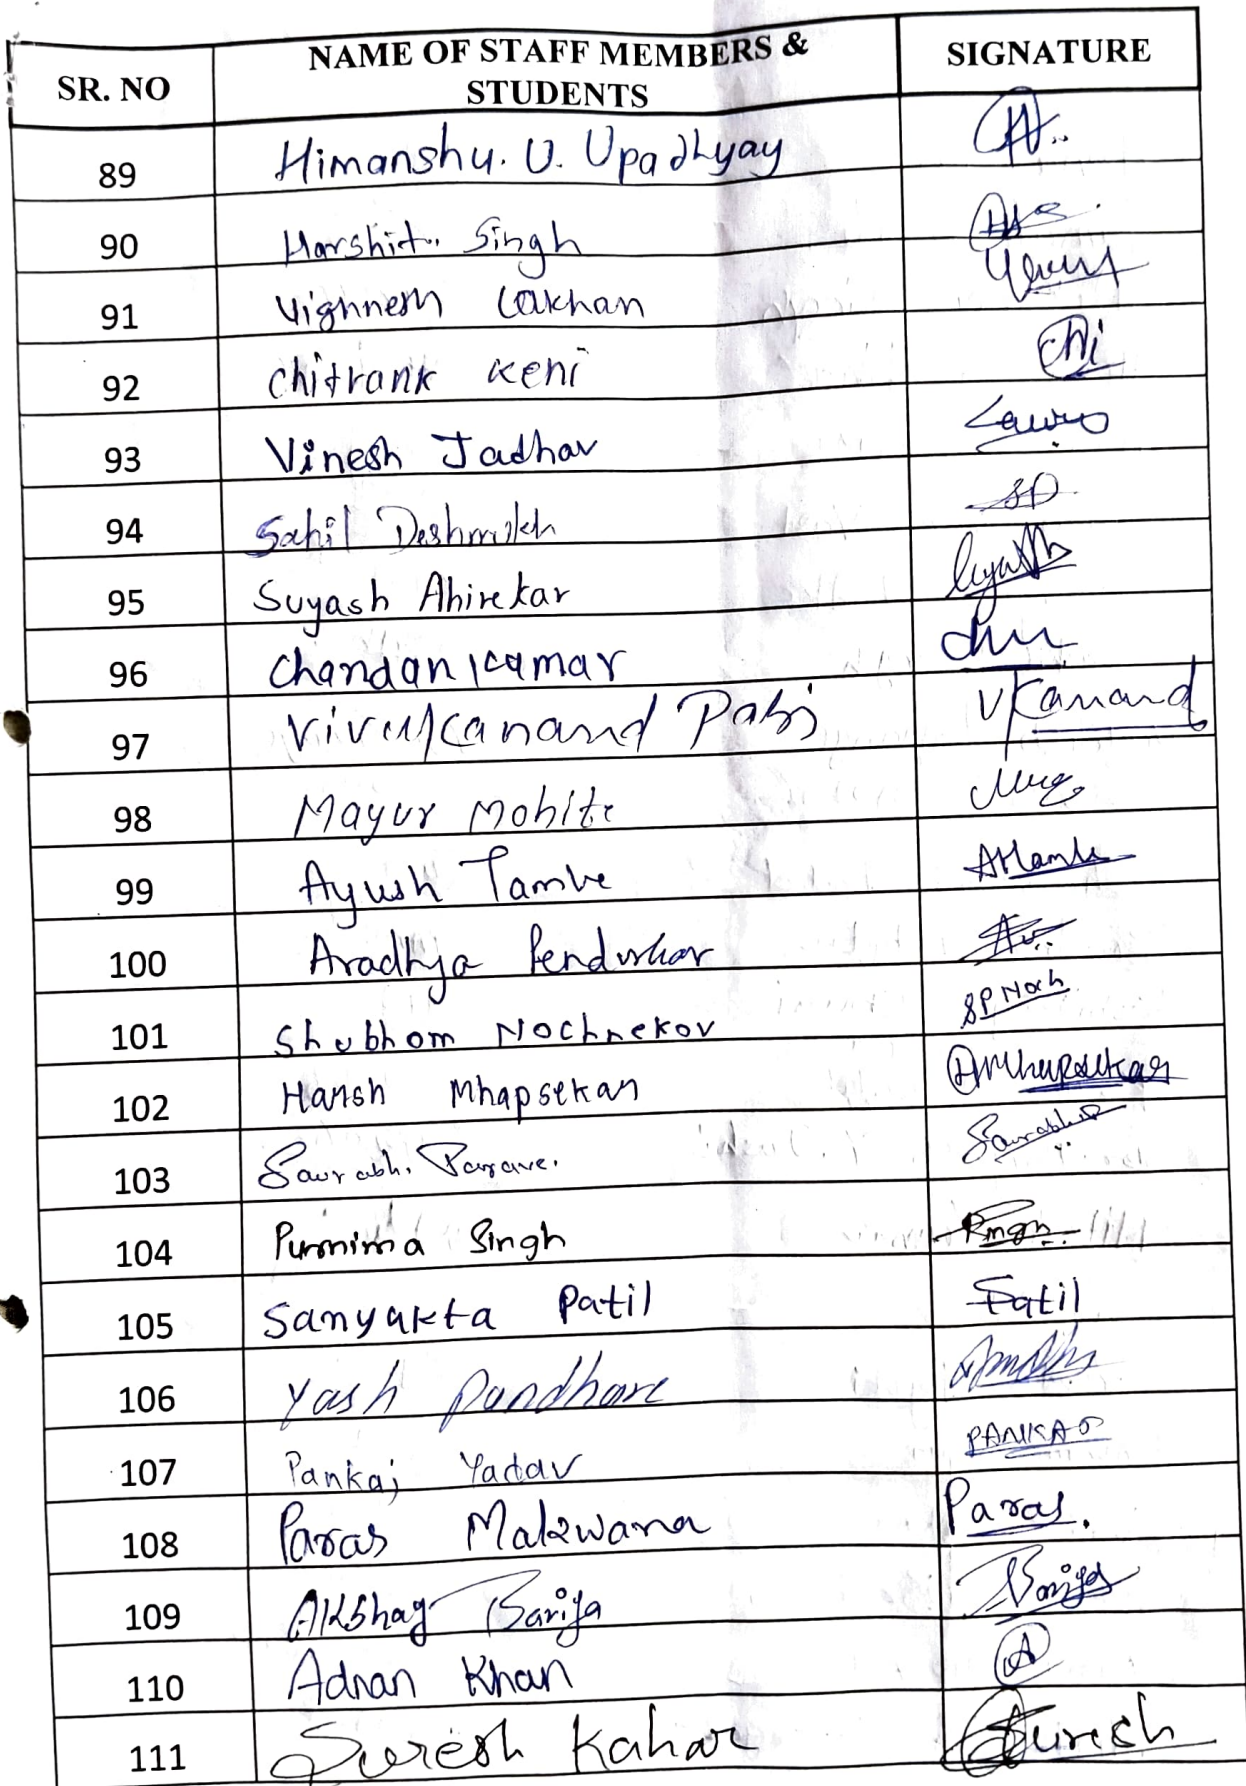 SR. NO NAME OF STAFF MEMBERS & STUDENTS SIGNATURE
89 Himanshu. U. Upadhyay
90 Harshit. Singh
91 Vighnesh Lakhan
92 Chitrank Keni Chi
93 Vinesh Jadhav
94 Sahil Deshmukh SD
95 Suyash Ahirekar
96 Chandan Kumar
97 Vivekanand VKanand
98 Mayur Mohite
99 Ayush Tambe
100 Aradhya Pendurkar
101 Shubham Nochnekor SPNoch
102 Hansh Mhapsekar
103 Saurabh. Parave.
104 Purnima Singh
105 Sanyukta Patil Patil
106 Yash Pandhare
107 Pankaj Yadav PANKAJ
108 Paras Makwana Paras.
109 Akshay Bariya
110 Adnan Khan A
111 Suresh Kahar Suresh